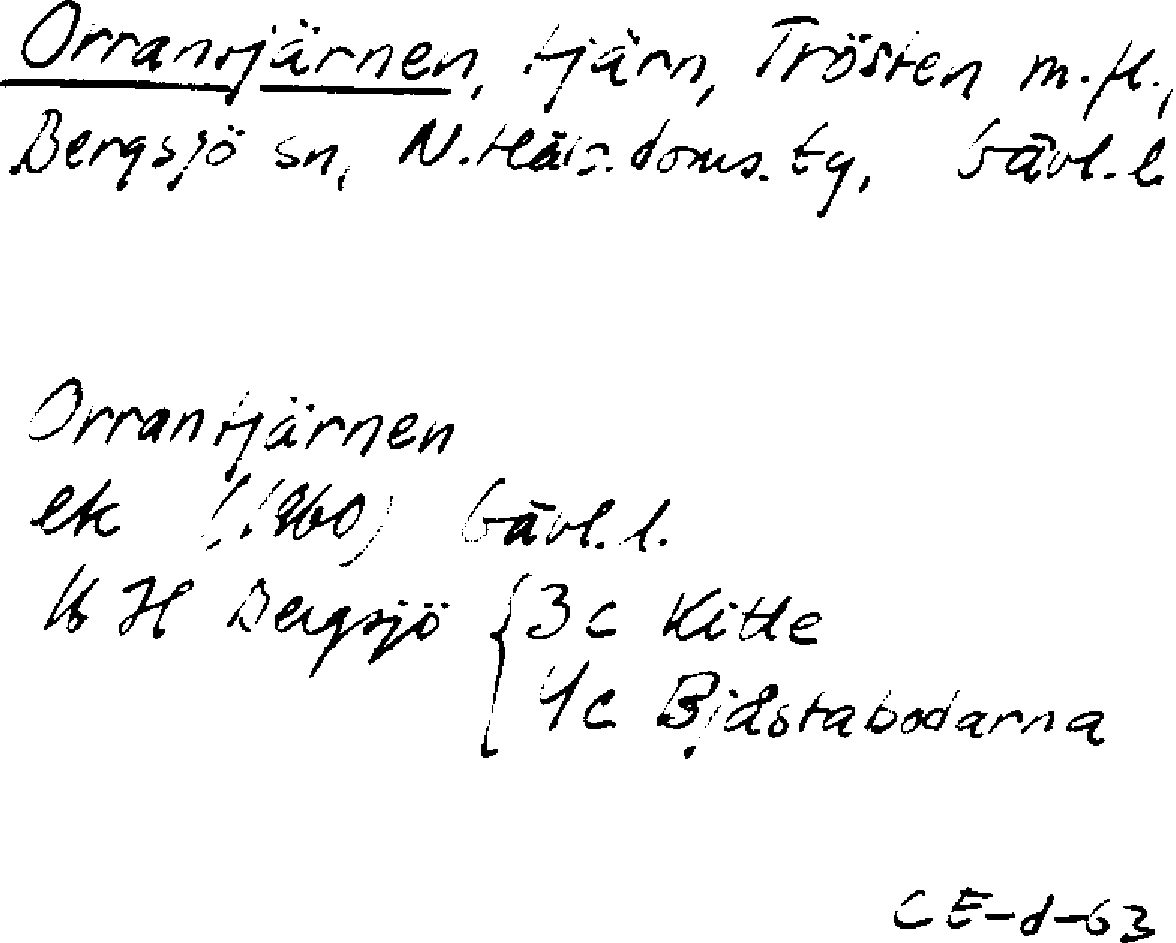 Orrantjärnen, tjärn, Trösten m.fl.,
Bergsjö sn, N.Häls.doms.tg, Gävl.l.
Orrantjärnen
ek (1960) Gävl.l.
16 H Bergsjö { 3c Kitte
4c Bjåstabodarna
CE-d-63